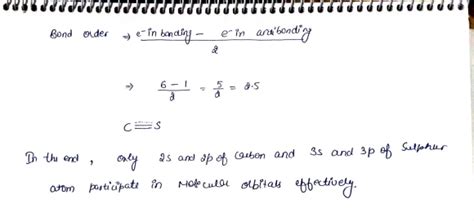 Bond order → e⁻ in bonding - e⁻ in antibonding
2
⇒ 6-1 / 2 = 5 / 2 = 2.5
C≡S
In the end, only 2s and 2p of Carbon and 3s and 3p of Sulphur
atom participate in Molecular orbitals effectively.